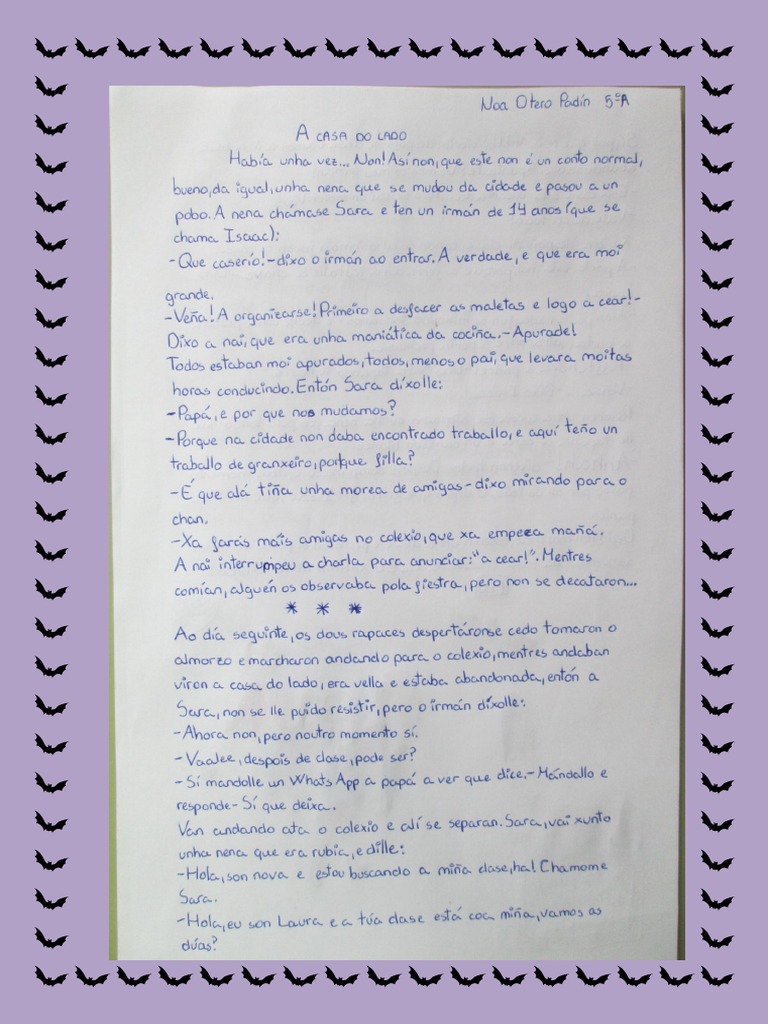 Noa Otero Padín 5ºA
A CASA DO LADO
Había unha vez... Non! Así non, que este non é un conto normal,
bueno, da igual, unha nena que se mudou da cidade e pasou a un
pobo. A nena chámase Sara e ten un irmán de 14 anos (que se
chama Isaac):
-Que caserío!-dixo o irmán ao entrar. A verdade, e que era moi
grande.
-Veña! A organizarse! Primeiro a desfacer as maletas e logo a cear!-
Dixo a nai, que era unha maniática da cociña.-Apurade!
Todos estaban moi apurados, todos, menos o pai, que levara moitas
horas conducindo. Entón Sara díxolle:
-Papá, e por que nos mudamos?
-Porque na cidade non daba encontrado traballo, e aquí teño un
traballo de granxeiro, porque filla?
-É que alá tiña unha morea de amigas-dixo mirando para o
chan.
-Xa farás máis amigas no colexio, que xa empeza mañá.
A nai interrumpeu a charla para anunciar: "a cear!". Mentres
comían, alguén os observaba pola fiestra, pero non se decataron...
* * *
Ao día seguinte, os dous rapaces despertáronse cedo tomaron o
almorzo e marcharon andando para o colexio, mentres andaban
viron a casa do lado, era vella e estaba abandonada, entón a
Sara, non se lle puido resistir, pero o irmán díxolle:
-Ahora non, pero noutro momento sí.
-Vaalee, despois de clase, pode ser?
-Sí mandolle un WhatsApp a papá a ver que dice.-Mándallo e
responde-Sí que deixa.
Van andando ata o colexio e alí se separan. Sara, vai xunto
unha nena que era rubia, e dille:
-Hola, son nova e estou buscando a miña clase, ha! Chamome
Sara.
-Hola, eu son Laura e a túa clase está coa miña, vamos as
dúas?